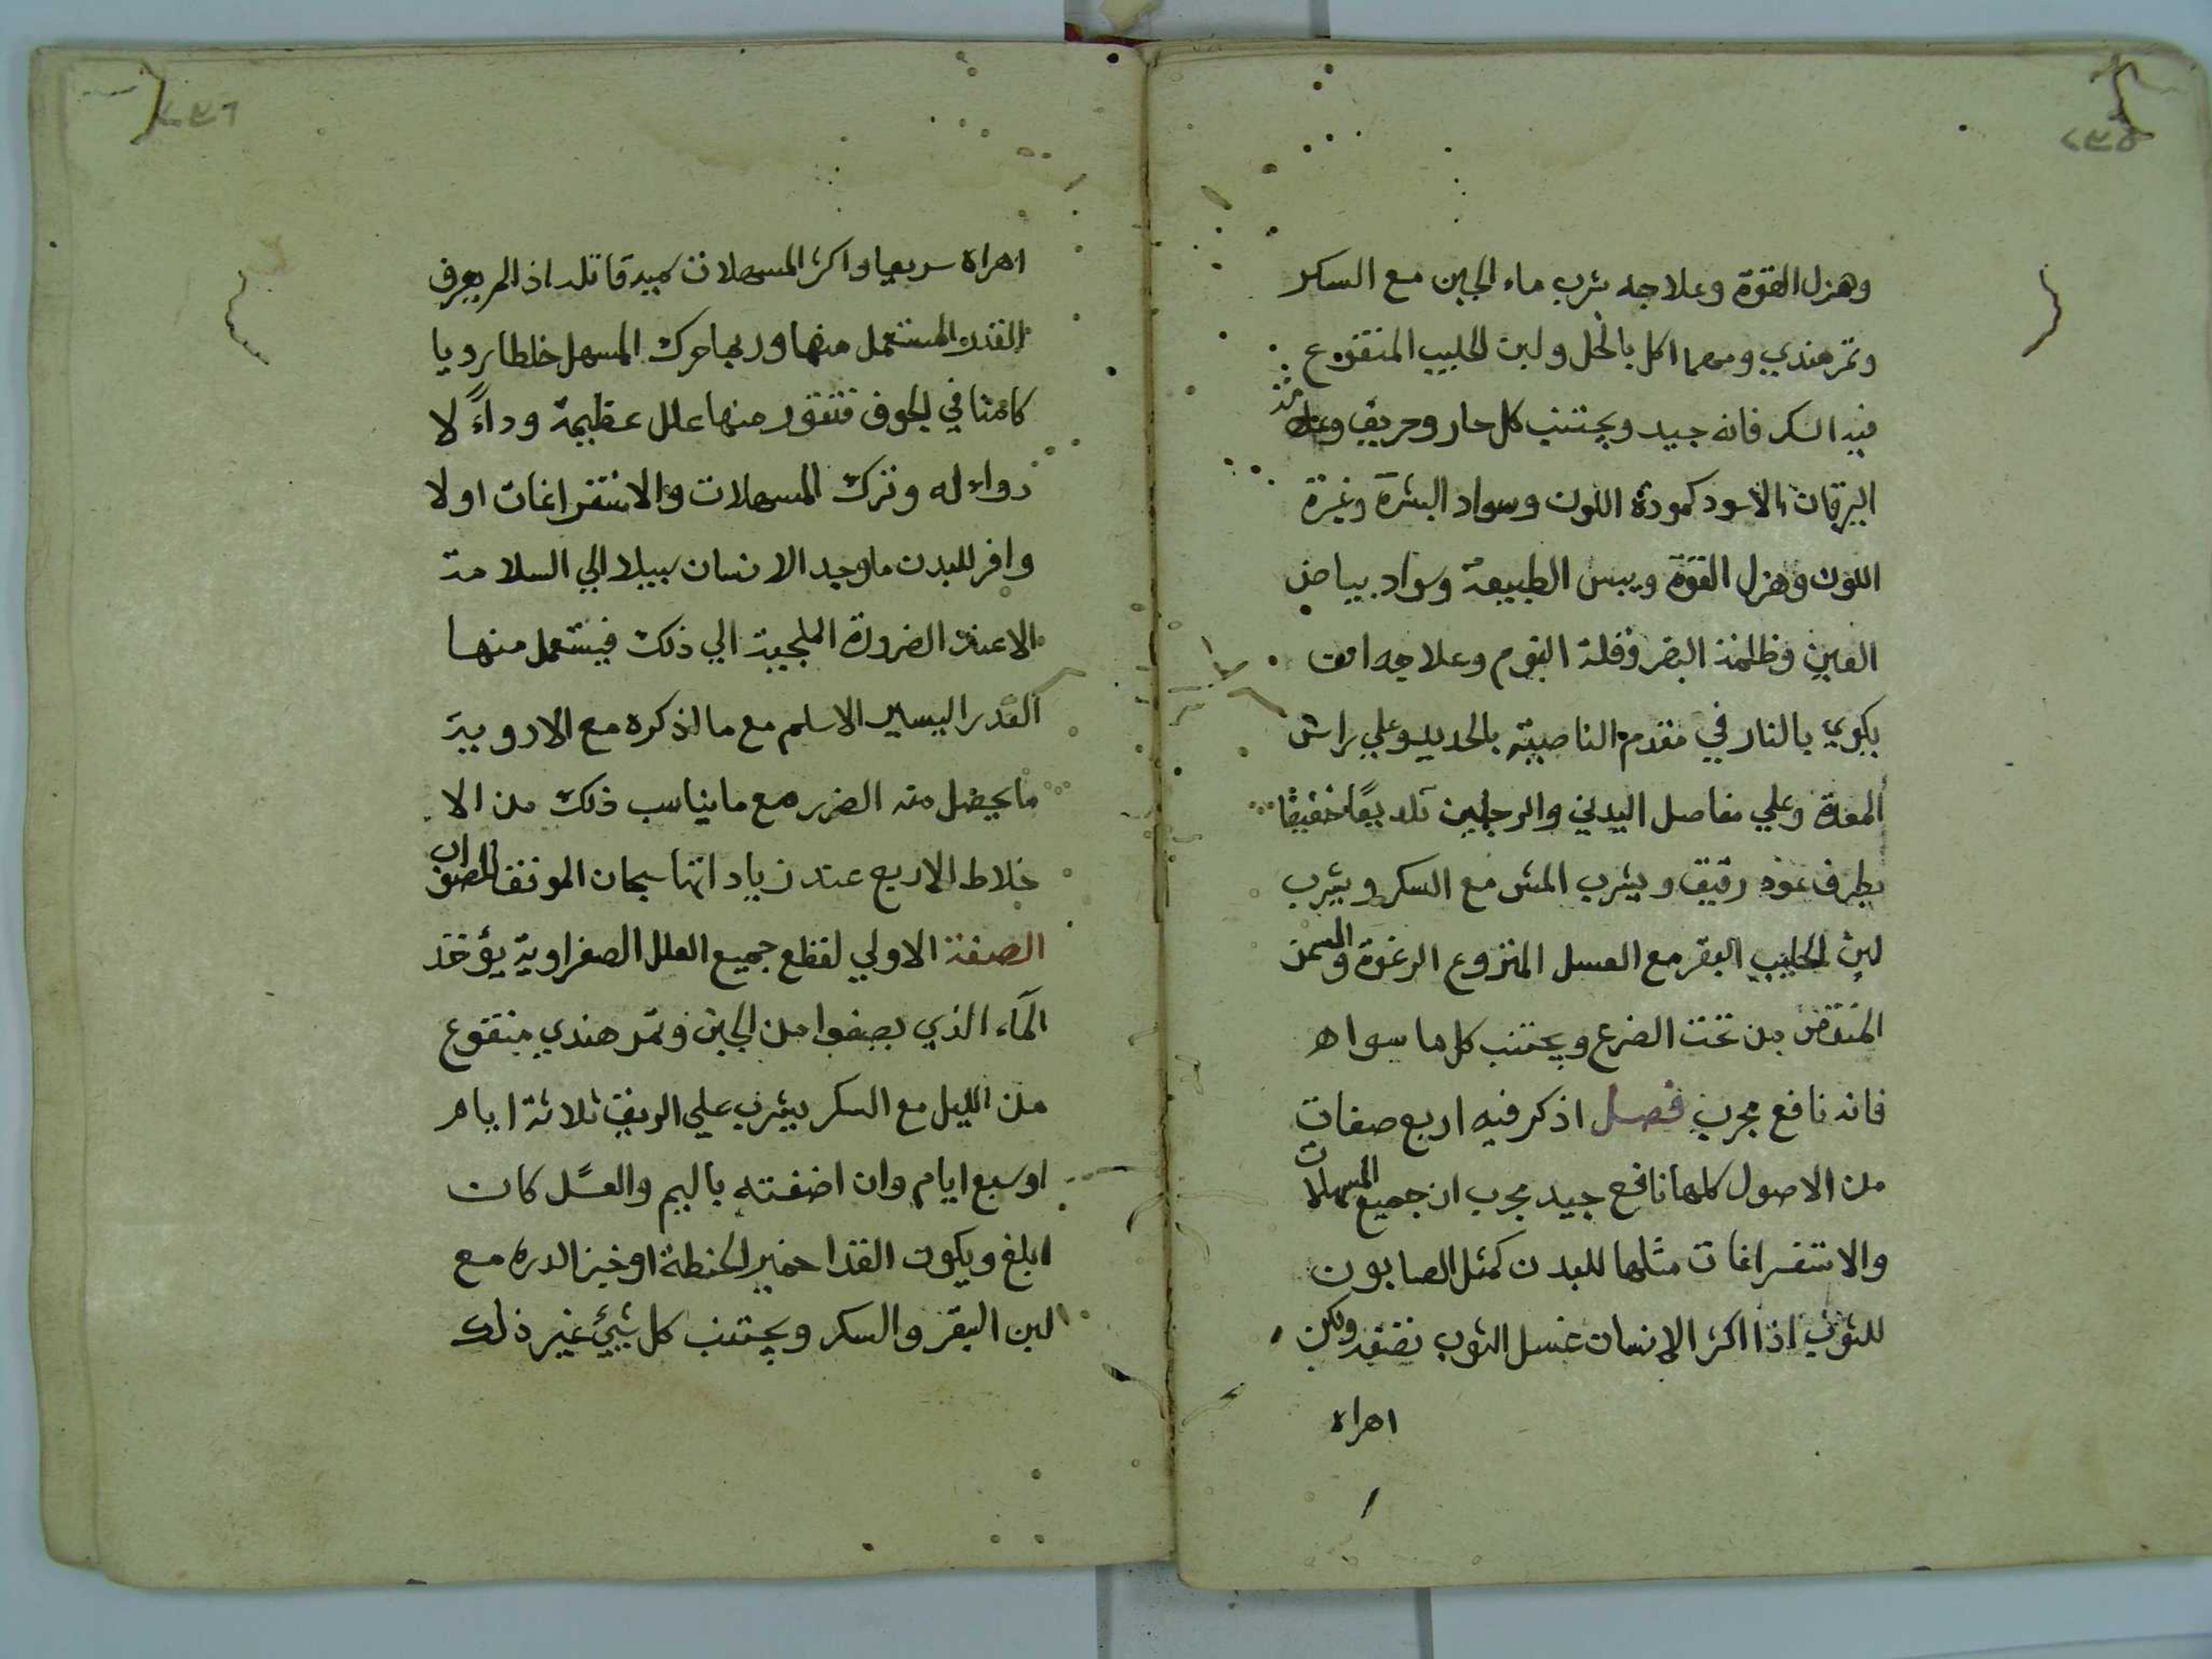 ٢٣٥
وهزل القوة وعلاجه شرب ماء الجبن مع السكر
وتمر هندي ومهما اكل بالخل ولبن الحليب المنقوع
فيه السكر فانه جيد ويجتنب كل حار وحريف وعلامة
اليرقان الاسود كمودة اللون وسواد البشرة وغبرة
اللون وهزل القوة ويبس الطبيعة وسواد بياض
العين وظلمة البصر وقلة النوم وعلاجه ان
يكوي بالنار في مقدم الناصية بالحديد وعلي راس
المعدة وعلي مفاصل اليدين والرجلين خفيفا
بطرف عود رقيق ويشرب مع السكر ويشرب
لبن الحليب البقر مع العسل المنزوع الرغوة والسمن
من تحت الضرع ويجتنب كل ما سواه
فانه نافع مجرب فصل اذكر فيه اربع صفات
من الاصول كلها نافع جيد مجرب ان جميع المسهلات
والاستفراغات مثلها للبدن كمثل الصابون
للثوب اذا اكثر الانسان غسل الثوب ولكن
اهراه
٢٣٦
اهراه سريعا واكثر المسهلات قاتله اذا لم يعرف
القدر المستعمل منها وربما حرك المسهل خلطا رديا
كامنا في الجوف منها علل عظيمة وداءً لا
دواء له وترك المسهلات والاستفراغات اولا
وافر للبدن ما وجد الانسان سبيلا الي السلامة
الا عند الضرورة الملجية الي ذلك فيستعمل منها
القدر اليسير الاسلم مع ما اذكره مع الادوية
ما يحصل منه الضرر مع ما يناسب ذلك من الا
خلاط الاربع عند زياداتها سبحان الموفق للصواب
الصفة الاولي لقطع جميع العلل الصفراوية يؤخذ
الماء الذي يصفوا من الجبن وتمر هندي منقوع
من الليل مع السكر يشرب علي الريق ثلاثة ايام
او سبع ايام وان اضفته بالبم والعسل كان
ابلغ ويكون الغذا خمير الحنطة او خبز الدره مع
لبن البقر والسكر ويجتنب كل شيئ غير ذلك